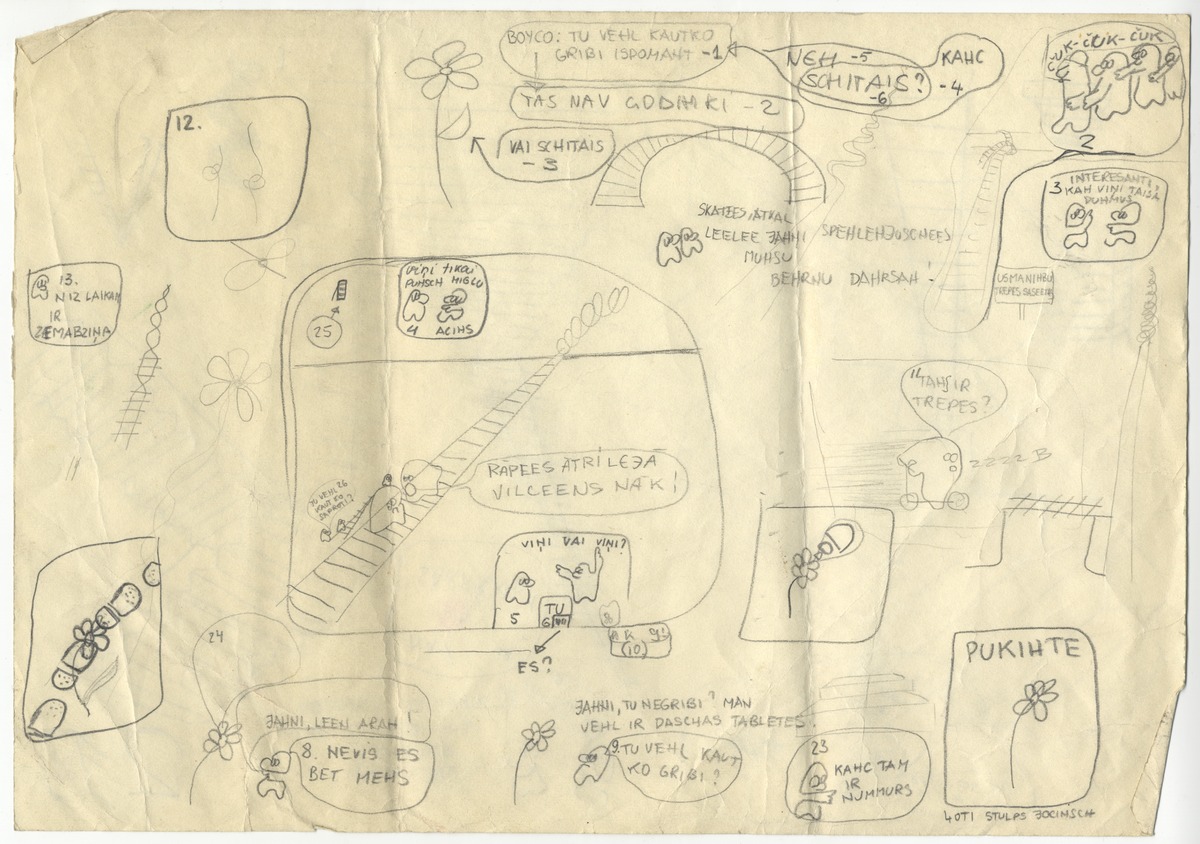 BOYCO: TU VEHL KAUTKO
GRIBI ISPOMAHT -1
TAS NAV GODIHKI - 2
VAI SCHITAIS
- 3
NEH -5
SCHITAIS?
-6
KAHC
- 4
ČUK-ČUK-ČUK
2
3 INTERESANTI,
KAH VIŅI TAISA
DUHMUS
12.
SKATEES, ATKAL
LEELEE JAHNI SPEHLEHJUSCHEES
MUHSU
BEHRNU DAHRSAH!
USMANIHBU
TREPES
13.
NIZ LAIKAM
IR
ZEMABZIŅA
25
VIŅI TIKAI
PUHSCH MIGLU
4 ACIHS
11 TAHS IR
TREPES?
2222 B
RAPEES ATRI LEJA
VILCEENS NAK!
TU VEHL 26
KAUT KO
VIŅI VAI VIŅI?
5
TU
6
8
(10)
ES?
24
PUKIHTE
JAHNI, LEEN ARAH!
8. NEVIS ES
BET MEHS
JAHNI, TU NEGRIBI? MAN
VEHL IR DASCHAS TABLETES.
9. TU VEHL KAUT
KO GRIBI?
23
KAHC TAM
IR
NUMMURS
LOTI STULPS JOCINSCH